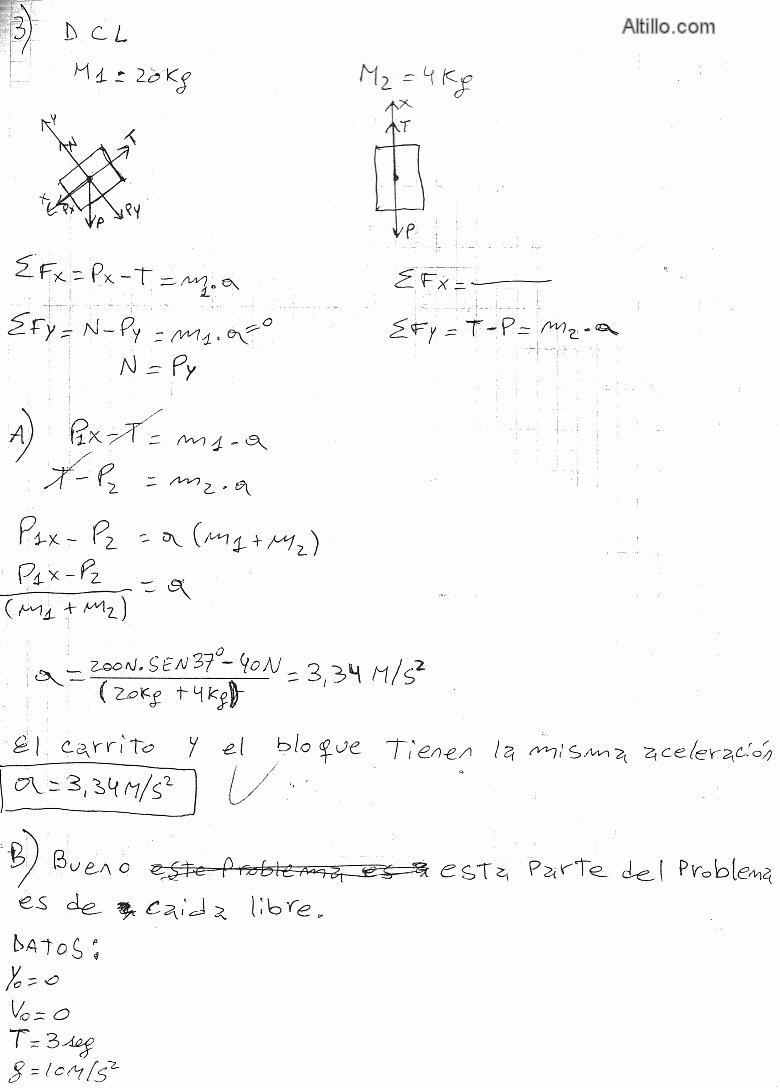 3) DCL
Altillo.com
M1 = 20Kg
M2 = 4Kg
Y
N
T
X
Px
P
Py
X
T
P
ΣFx = Px - T = m1.a
ΣFx = ———
ΣFy = N - Py = m1.a = 0
ΣFy = T - P = m2.a
N = Py
A) P1x - T = m1.a
T - P2 = m2.a
P1x - P2 = a (m1 + m2)
P1x - P2
———— = a
(m1 + m2)
a = 200N.SEN37° - 40N / (20Kg + 4Kg) = 3,34 M/S²
El carrito y el bloque Tienen la misma aceleración
a = 3,34 M/S²
B) Bueno este Problema es esta Parte del Problema
es de caida libre.
DATOS:
Yo = 0
Vo = 0
T = 3seg
g = 10M/S²